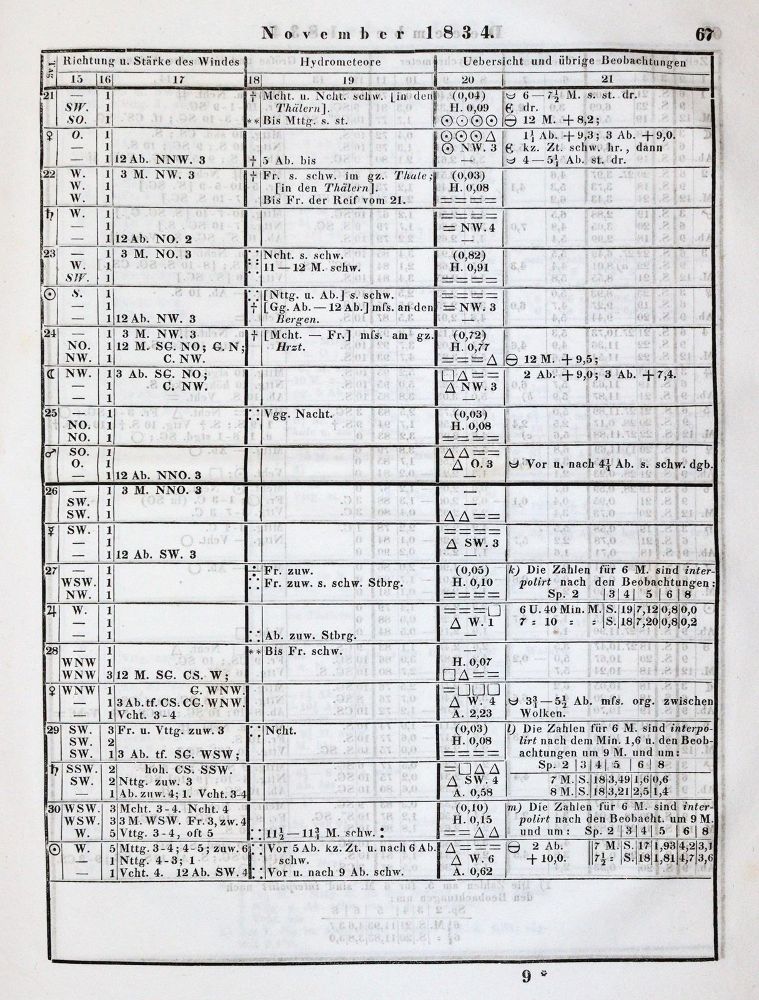 November 1834. 67
Tag Richtung u. Stärke des Windes Hydrometeore Uebersicht und übrige Beobachtungen
15 16 17 18 19 20 21
21 — 1 † Mcht. u. Ncht. schw. [in den (0,04) 6—7½ M. s. st. dr.
SW. 1 Thälern]. H. 0,09 ☾ dr.
SO. 1 ** Bis Mttg. s. st. ⊙⊙⊙⊙ ⊖ 12 M. +8,2;
♀ O. 1 ⊙⊙⊙△ 1½ Ab. +9,3; 3 Ab. +9,0.
— 1 ⊙ NW. 3 kz. Zt. schw. hr., dann
— 1 12 Ab. NNW. 3 † 5 Ab. bis — 4—5½ Ab. st. dr.
22 W. 1 3 M. NW. 3 † Fr. s. schw. im gz. Thale; (0,03)
W. 1 [in den Thälern]. H. 0,08
W. 1 Bis Fr. der Reif vom 21. ====
♄ W. 1 ====
— 1 = NW. 4
— 1 12 Ab. NO. 2 —
23 — 1 3 M. NO. 3 Ncht. s. schw. (0,82)
W. 1 11—12 M. schw. H. 0,91
SW. 1 ====
⊙ S. 1 [Nttg. u. Ab.] s. schw. ====
— 1 † [Gg. Ab.—12 Ab.] mfs. an den = NW. 3
— 1 12 Ab. NW. 3 Bergen. —
24 — 1 3 M. NW. 3 † [Mcht. — Fr.] mfs. am gz. (0,72)
NO. 1 12 M. SG. NO; G. N; Hrzt. H. 0,77
NW. 1 C. NW. ===△ ⊖ 12 M. +9,5;
☾ NW. 1 3 Ab. SG. NO; □△== 2 Ab. +9,0; 3 Ab. +7,4.
— 1 C. NW. △ NW. 3
— 1 —
25 — 1 Vgg. Nacht. (0,03)
NO. 1 H. 0,08
NO. 1 ====
♂ SO. 1 △△==
O. 1 △ O. 3 Vor u. nach 4¼ Ab. s. schw. dgb.
— 1 12 Ab. NNO. 3 —
26 — 1 3 M. NNO. 3 —
SW. 1 —
SW. 1 △△==
☿ SW. 1 ====
— 1 △ SW. 3
— 1 12 Ab. SW. 3 —
27 — 1 Fr. zuw. (0,05) k) Die Zahlen für 6 M. sind inter-
WSW. 1 Fr. zuw. s. schw. Stbrg. H. 0,10 polirt nach den Beobachtungen:
NW. 1 ==== Sp. 2 |3|4| 5 |6|8
♃ W. 1 ===□ 6 U. 40 Min. M. S. 19 7,12 0,8 0,0
— 1 △ W. 1 7 = 10 = = S. 18 7,20 0,8 0,2
— 1 Ab. zuw. Stbrg. —
28 — 1 ** Bis Fr. schw. —
WNW 1 H. 0,07
WNW 3 12 M. SG. CS. W; □△==
♀ WNW 1 G. WNW. =□□□
— 1 3 Ab. tf. CS. CG. WNW. △ W. 4 3¾—5½ Ab. mfs. org. zwischen
— 1 Vcht. 3-4 A. 2,23 Wolken.
29 SW. 3 Fr. u. Vttg. zuw. 3 Ncht. (0,03) l) Die Zahlen für 6 M. sind interpo-
SW. 2 H. 0,08 lirt nach dem Min. 1,6 u. den Beob-
SW. 1 3 Ab. tf. SG. WSW; ==== achtungen um 9 M. und um:
♄ SSW. 2 hoh. CS. SSW. =□△△ Sp. 2 |3|4| 5 |6|8
SW. 2 Nttg. zuw. 3 △ SW. 4 7 M. S. 18 3,49 1,6 0,6
1 Ab. zuw. 4; 1. Vcht. 3-4 A. 0,58 8 M. S. 18 3,21 2,5 1,4
30 WSW. 3 Mcht. 3-4. Ncht. 4 (0,10) m) Die Zahlen für 6 M. sind inter-
WSW. 3 3 M. WSW. Fr. 3, zw. 4 H. 0,15 polirt nach den Beobacht. um 9 M.
W. 5 Vttg. 3-4, oft 5 11½—11¾ M. schw. ==△△ und um: Sp. 2 |3|4| 5 |6|8
⊙ W. 5 Mttg. 3-4; 4-5; zuw. 6 Vor 5 Ab. kz. Zt. u. nach 6 Ab. △=== ⊖ 2 Ab. 7 M. S. 17 1,93 4,2 3,1
— 1 Nttg. 4-3; 1 schw. △ W. 6 +10,0. 7½ = S. 18 1,81 4,7 3,6
— 1 Vcht. 4. 12 Ab. SW. 4 Vor u. nach 9 Ab. schw. A. 0,62
9 *